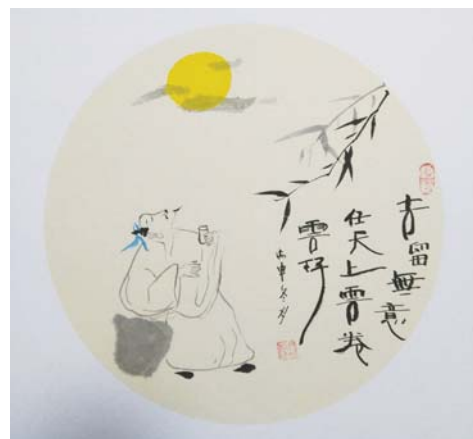 去留無意
任天上雲卷
雲舒
丙申冬